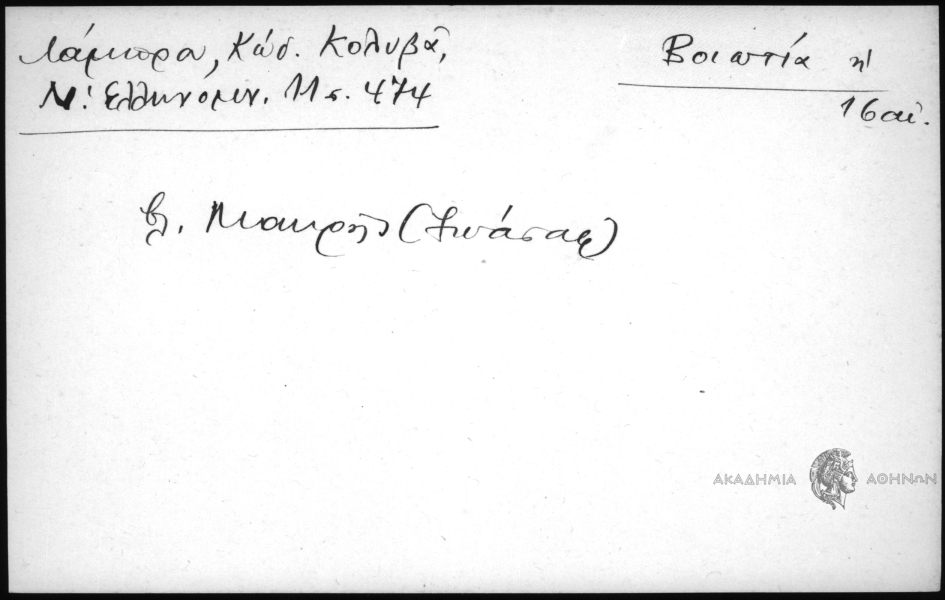 Λάμπρου, Κώδ. Κολυβᾶ,
Ν. Ἑλληνομν. 11 σ. 474
Βοιωτία η'
16 αἰ.
βλ. Μακρῆς
ΑΚΑΔΗΜΙΑ ΑΘΗΝΩΝ